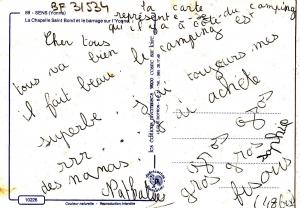 BF 31534
89 - SENS (Yonne)
La Chapelle Saint Bond et le barrage sur l'Yonne
la carte
représente du camping
qu'il y a à côté
Cher tous
tous va bien
il fait beau le camping est
superbe. J'ai toujours mes
rrr. j'ai acheté
des nanas.
Nathalie
gros
gros gros
gros gros
bisous
Sophie
10226
Couleur naturelle - Reproduction interdite